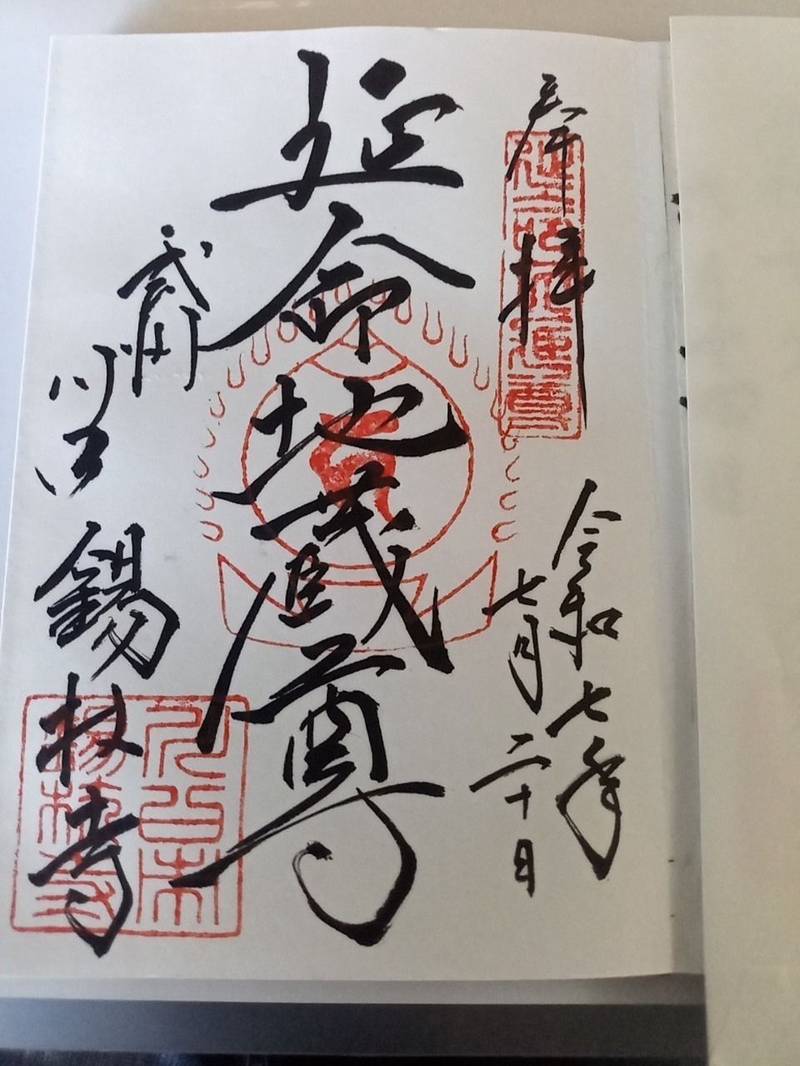 奉拝
令和七年
七月二十日
延命地蔵尊
武州
川口
錫杖寺